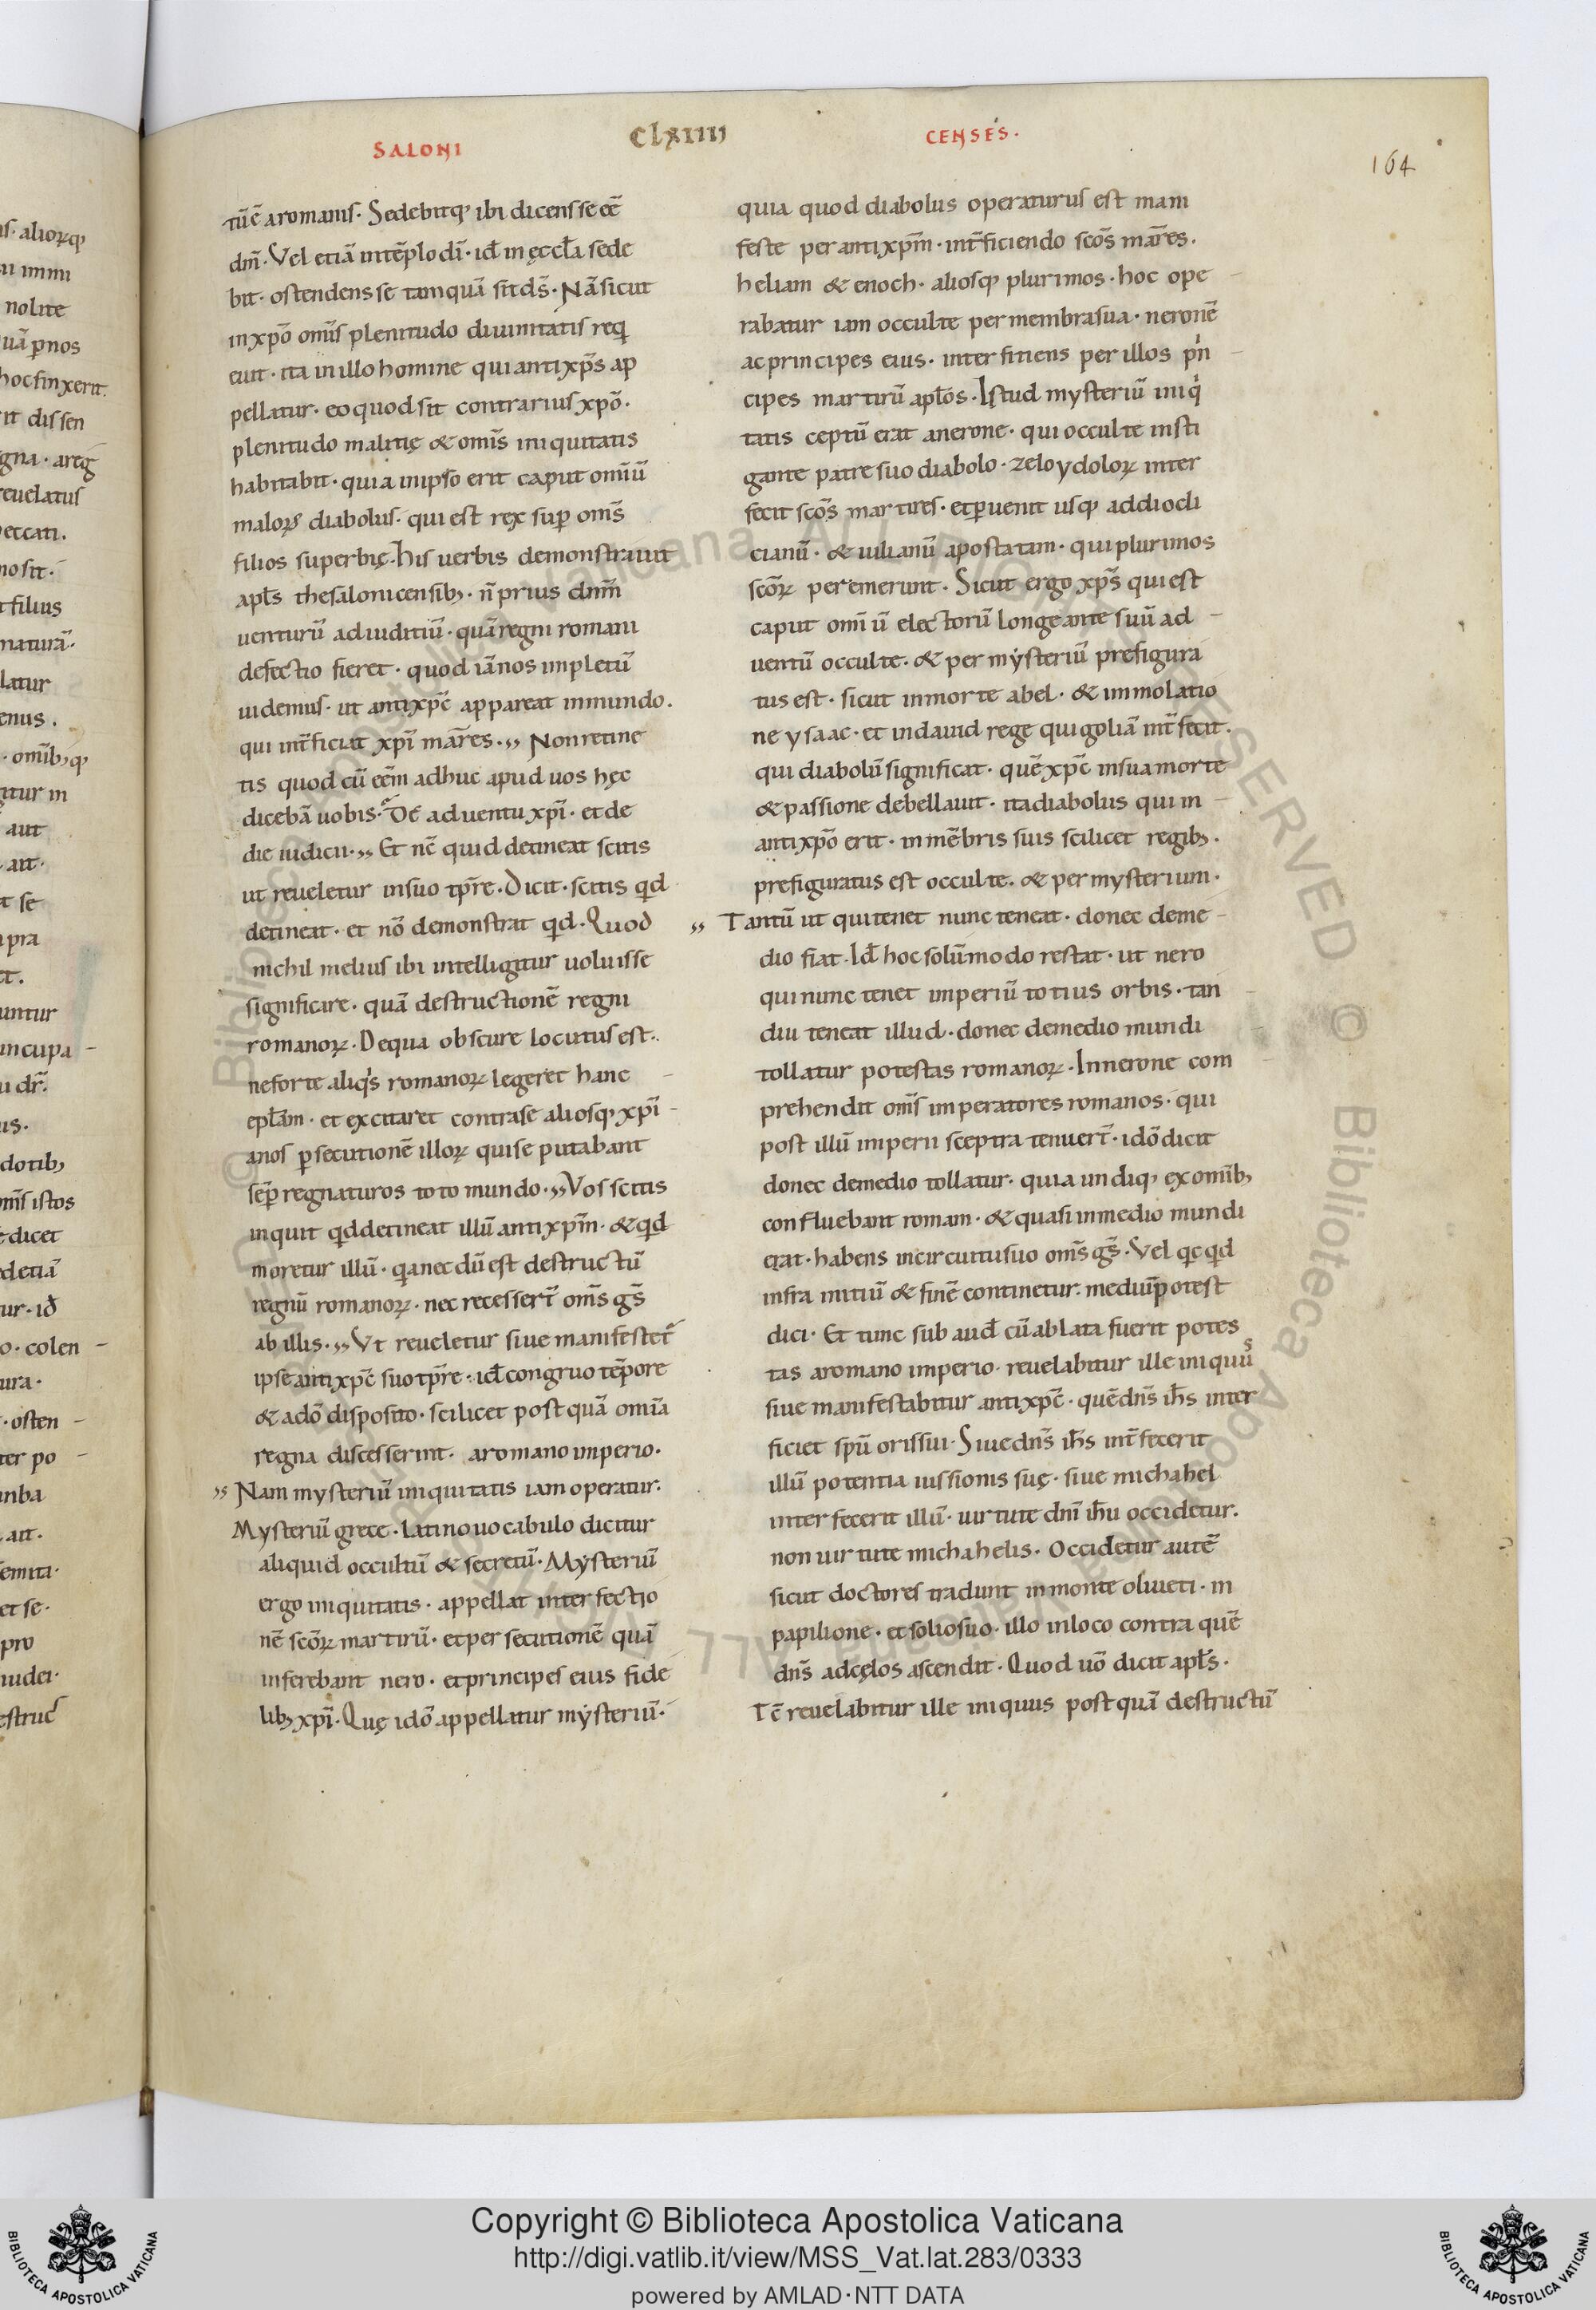 SALONI
CLXIIII
CENSES.
164
tūc̄ a romanis. Sedebitq; ibi dicens se eē
dm̄. Vel etiā in tēplo dī. id̄ in ęccl̄a sede
bit. ostendens se tamquā sit ds̄. Nā sicut
in xp̄o om̄s plenitudo diuinitatis req
euit. ita in illo homine qui antixp̄s ap
pellatur. eo quod sit contrarius xp̄o.
plenitudo malitię & om̄s iniquitatis
habitabit. quia in ipso erit caput om̄iū
maloꝝ diabolus. qui est rex sup om̄s
filios superbię. his uerbis demonstrauit
apl̄s thesalonicensib; n̄ prius dn̄m̄
uenturū ad iuditiū. quā regni romani
defectio fieret. quod iā nos impletū
uidemus. ut antixp̄c appareat in mundo.
qui int̄ficiat xp̄i mar̄es. ,, Non retine
tis quod cū eēm adhuc apud uos hęc
dicebā uobis. De aduentu xp̄i. et de
die iudicii. ,, Et nc̄ quid detineat scitis
ut reueletur in suo tp̄re. Dicit. scitis qd
detineat. et nō demonstrat qd. Quod
nichil melius ibi intelligitur uoluisse
significare. quā destructionē regni
romanoꝝ. De qua obscure locutus est.
ne forte aliqͥs romanoꝝ legeret hanc
epl̄am. et excitaret contra se aliosq; xp̄i
anos ꝑsecutionē illoꝝ qui se putabant
sēp regnaturos toto mundo. ,, Vos scitis
inquit qd detineat illū antixp̄m. & qd
moretur illū. qa nec dū est destructū
regnū romanoꝝ. nec recesser̄t om̄s gs̄
ab illis. ,, Vt reueletur siue manifestet̄
ipse antixp̄c suo tp̄re. id̄ congruo tēpore
& a dō disposito. scilicet postquā om̄ia
regna discesserint. a romano imperio.
,, Nam mysteriū iniquitatis iam operatur.
Mysteriū grece. latino uocabulo dicitur
aliquid occultū & secretū. Mysteriū
ergo iniquitatis. appellat interfectio
nē scōꝝ martirū. et persecutionē quā
inferebant nero. et principes eius fide
lib; xp̄i. Quę idō appellatur mysteriū.
quia quod diabolus operaturus est mani
feste per antixp̄m. int̄ficiendo scōs mar̄es.
heliam & enoch. aliosq; plurimos. hoc ope
rabatur iam occulte per membra sua. neronē
ac principes eius. interfitiens per illos pͥn
cipes martirū apl̄os. Istud mysteriū iniqͥ
tatis ceptū erat a nerone. qui occulte insti
gante patre suo diabolo. zelo ydoloꝝ inter
fecit scōs martires. et ꝑuenit usq; ad diocli
cianū. & iulianū apostatam. qui plurimos
scōꝝ peremerunt. Sicut ergo xp̄s qui est
caput om̄iū electorū longe ante suū ad
uentū occulte. & per mysteriū prefigura
tus est. sicut in morte abel. & immolatio
ne ysaac. et in dauid rege qui goliā int̄fecit.
qui diabolū significat. quē xp̄c in sua morte
& passione debellauit. ita diabolus qui in
antixp̄o erit. in mēbris suis scilicet regib;.
prefiguratus est occulte. & per mysterium.
,, Tantū ut qui tenet nunc teneat. donec deme
dio fiat. Id̄ hoc solūmodo restat. ut nero
qui nunc tenet imperiū totius orbis. tan
diu teneat illud. donec demedio mundi
tollatur potestas romanoꝝ. In nerone com
prehendit om̄s imperatores romanos. qui
post illū imperii sceptra tenuer̄t. idō dicit
donec demedio tollatur. quia undiq; ex omīb;
confluebant romam. & quasi in medio mundi
erat. habens in circuitu suo om̄s gs̄. Vel qcqd
infra initiū & finē continetur. mediū potest
dici. Et tunc subaud̄ cū ablata fuerit potes
tas a romano imperio. reuelabitur ille iniquus
siue manifestabitur antixp̄c. quē dn̄s ih̄s inter
ficiet spū oris sui. Siue dn̄s ih̄s int̄fecerit
illū potentia iussionis suę. siue michahel
interfecerit illū. uirtute dn̄i ih̄u occidetur.
non uirtute michahelis. Occidetur autē
sicut doctores tradunt in monte oliueti. in
papilione. et solio suo. illo in loco contra quē
dn̄s ad cęlos ascendit. Quod uō dicit apl̄s.
Tc̄ reuelabitur ille iniquus postquā destructū
Copyright © Biblioteca Apostolica Vaticana
http://digi.vatlib.it/view/MSS_Vat.lat.283/0333
powered by AMLAD·NTT DATA